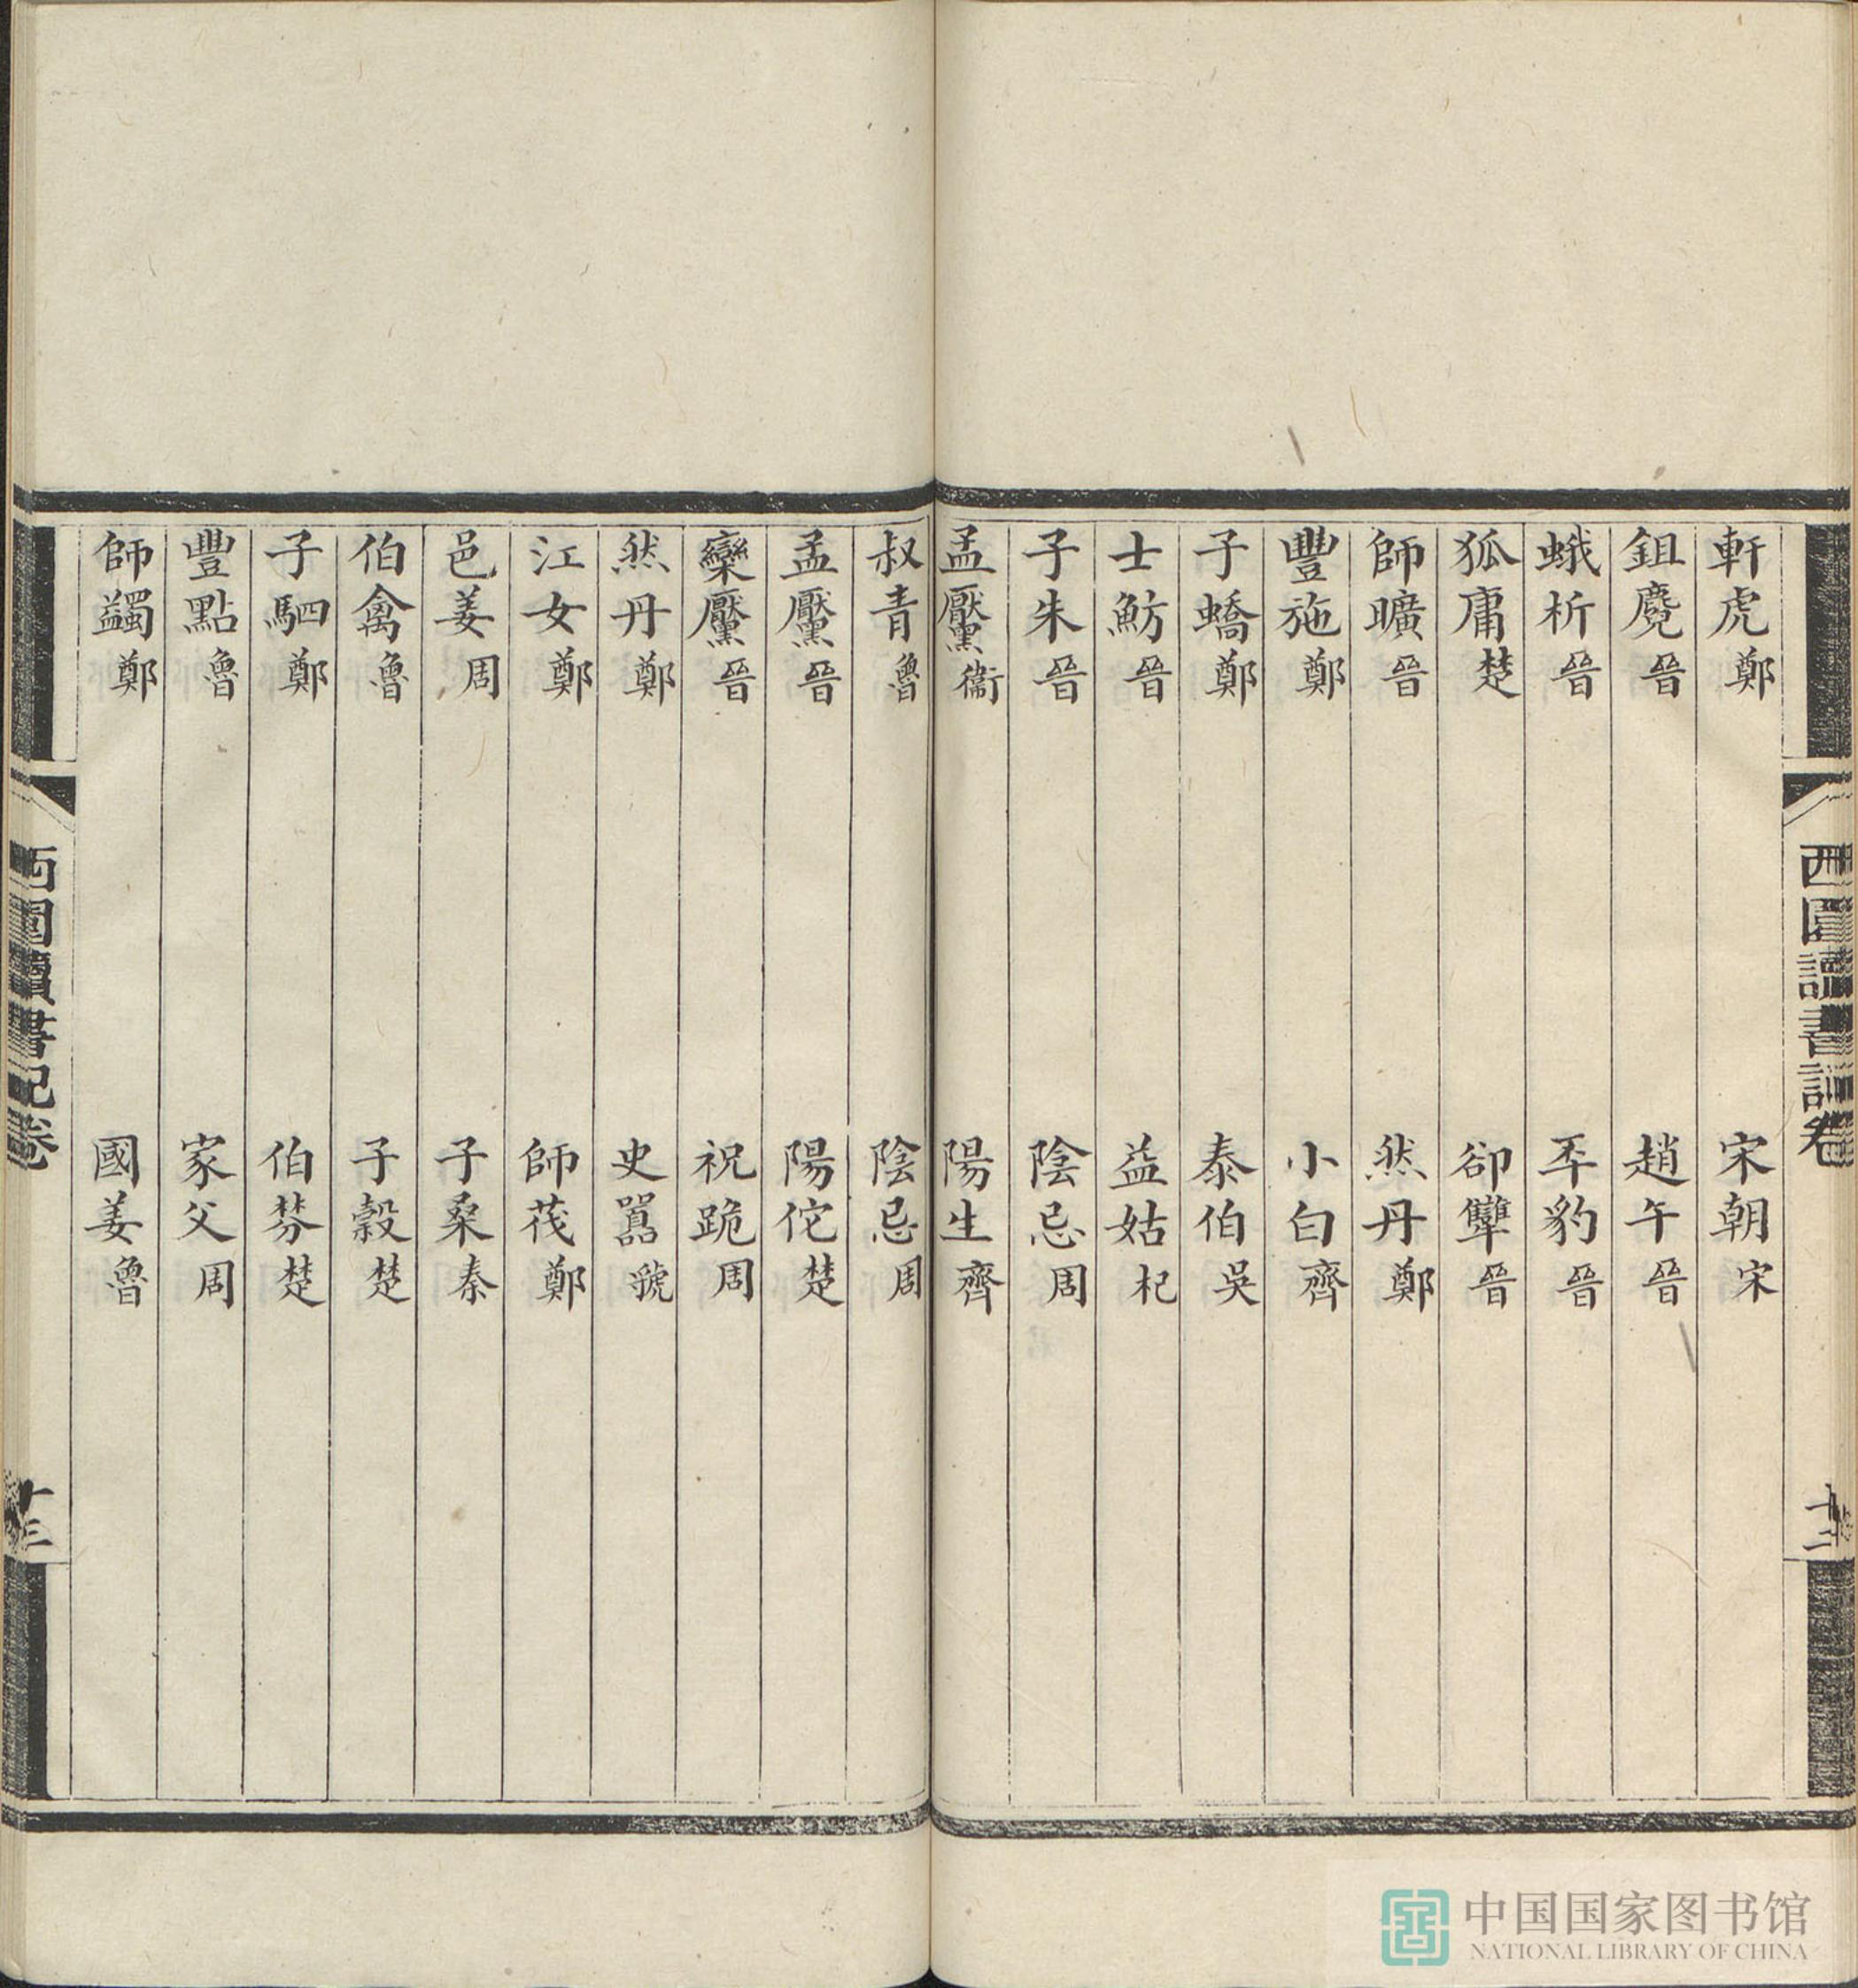 軒虎鄭 宋朝宋
鉏麑晉 趙午晉
蛾析晉 㔻豹晉
狐庸楚 郤犨晉
師曠晉 然丹鄭
豐施鄭 小白齊
子蟜鄭 泰伯吳
士魴晉 益姑杞
子朱晉 陰忌周
孟黶衞 陽生齊
叔青魯 陰忌周
孟黶晉 陽佗楚
欒黶晉 祝跪周
然丹鄭 史嚚虢
江女鄭 師茷鄭
邑姜周 子桑秦
伯禽魯 子穀楚
子駟鄭 伯棼楚
豐點魯 家父周
師蠲鄭 國姜魯
西圃讀書記卷 十二
西圃讀書記卷 十三
中国国家图书馆
NATIONAL LIBRARY OF CHINA